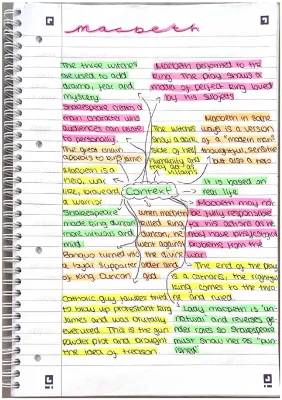 macbeth
The three witches
are used to add
drama, fear and
mystery.
Shakespeare creates a
main character who
audiences can relate
to personally.
The great chain
appeals to king James
Macbeth is a
hero, war
like, loyal and
a warrior
Shakespeare
made king duncan
more virtuous and
kind.
Banquo turned into
a loyal supporter
of King Duncan
Catholic Guy Fawkes tried
to blow up protestant king
James and was brutally
executed. This is the gun
powder plot and brought
the idea of treason
Macbeth performed to the
king. The play shows a
model of perfect king loved
by his subjects
The witches
show a dark
side of
humanity and
they act as
villains
Macbeth in some
ways is a version
of a "modern man"
thoughtful, sensitive
but also a hero
Context
It is based on
real life
Macbeth may not
be fully responsible
for his actions as he
may have
problems from the
war
when macbeth
killed king
Duncan, he
went against
the divine
order and
god.
The end of the play
is a catharsis, the rightful
king comes to the throne
and ruled.
Lady macbeth is "un-
natural" and reverses ge-
nder roles so Shakespeare
must show her as "pun-
ished"